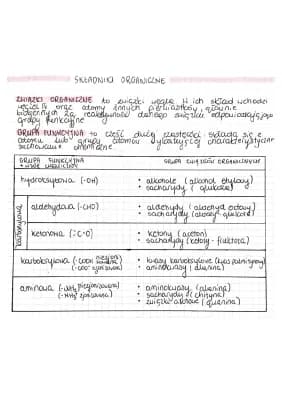 SKŁADNIKI ORGANICZNE
ZWIĄZKI ORGANICZNE to związki węgla. W ich skład wchodzi
węgiel oraz atomy innych pierwiastków, głównie
za reaktywność danego związku odpowiadają
grupy funkcyjne
GRUPA FUNKCYJNA to część dużej cząsteczki składa się z
atomu lub grupy atomów charakterystyczne
chemiczne
GRUPA FUNKCYJNA
GRUPA ZWIĄZKÓW ORGANICZNYCH
hydroksylowa (-OH)
• alkohole (alkohol etylowy)
• sacharydy (glukoza)
karbonylowa
aldehydowa (-CHO)
• aldehydy (aldehyd octowy)
• sacharydy (aldozy - glukoza)
ketonowa (>C=O)
• ketony (aceton)
• sacharydy (ketozy - fruktoza)
karboksylowa (-COOH
(-COO⁻ zjonizowana)
• kwasy karboksylowe (kwas palmitynowy)
• aminokwasy (alanina)
aminowa (-NH₂ niezjonizowana)
(-NH₃⁺ zjonizowana)
• aminokwasy (alanina)
• sacharydy (chityna)
• związki azotowe (guanina)